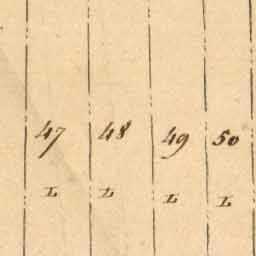 47 48 49 50
L L L L